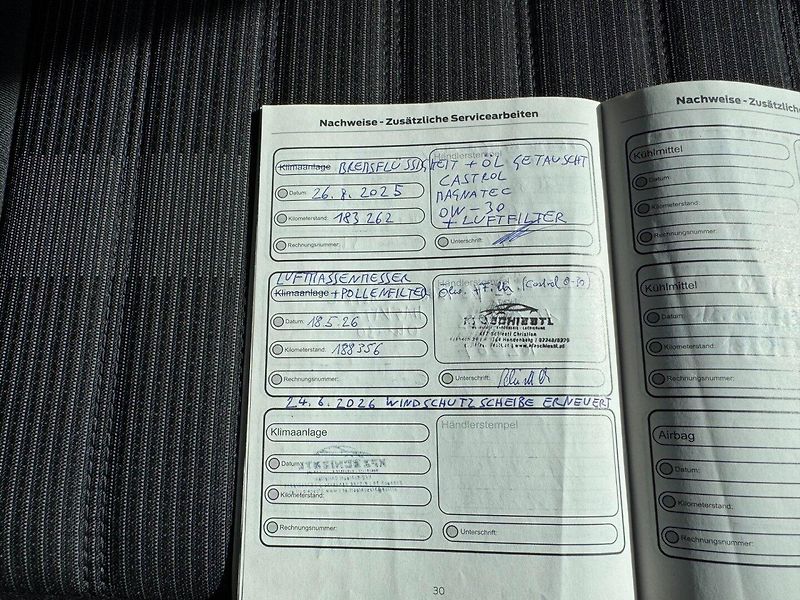 Nachweise - Zusätzliche Servicearbeiten
Klimaanlage BREMSFLÜSSIGKEIT + ÖL GETAUSCHT
Händlerstempel
CASTROL
MAGNATEC
0W-30
+ LUFTFILTER
Datum: 26.8.2025
Kilometerstand: 183 262
Rechnungsnummer:
Unterschrift:
LUFTMASSENMESSER
Klimaanlage + POLLENFILTER
Händlerstempel
(Castrol 0-30)
KFZ SCHIESTL
KFZ Schiestl Christian
Datum: 18.5.26
Kilometerstand: 188356
Rechnungsnummer:
Unterschrift:
24.6.2026 WINDSCHUTZSCHEIBE ERNEUERT
Klimaanlage
Händlerstempel
Datum:
Kilometerstand:
Rechnungsnummer:
Unterschrift:
30
Nachweise - Zusätzliche
Kühlmittel
Datum:
Kilometerstand:
Rechnungsnummer:
Kühlmittel
Datum:
Kilometerstand:
Rechnungsnummer:
Airbag
Datum:
Kilometerstand:
Rechnungsnummer: